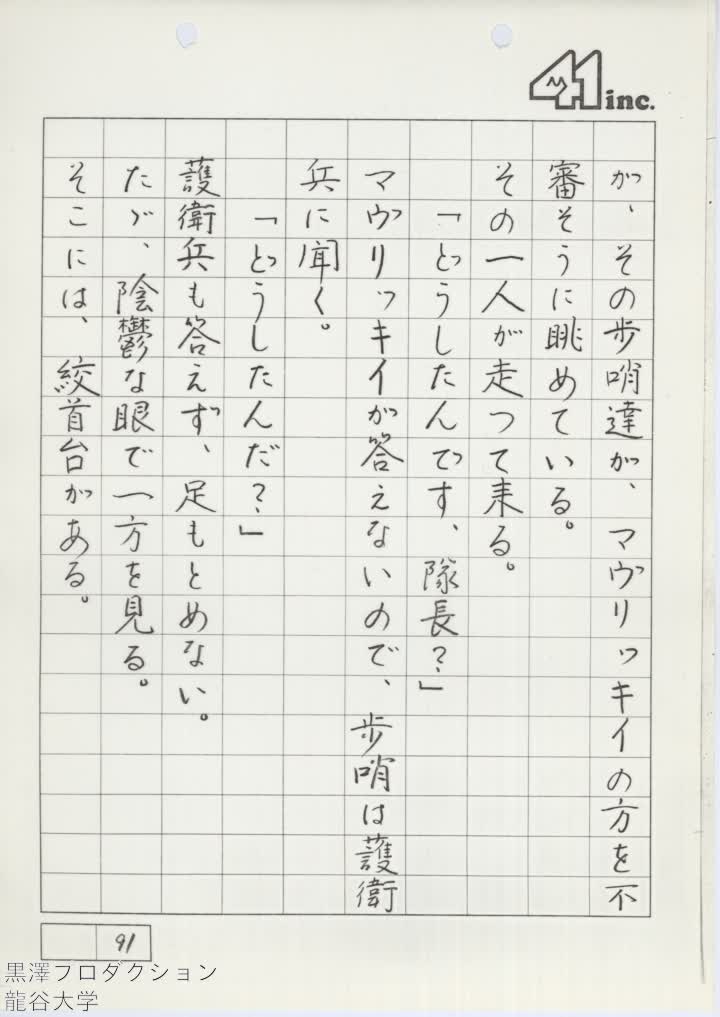 41 inc.
が、その歩哨達が、マヴリッキイの方を不
審そうに眺めている。
その一人が走って来る。
「どうしたんです、隊長?」
マヴリッキイが答えないので、歩哨は護衛
兵に聞く。
「どうしたんだ?」
護衛兵も答えず、足もとめない。
たゞ、陰鬱な眼で一方を見る。
そこには、絞首台がある。
91
黒澤プロダクション
龍谷大学